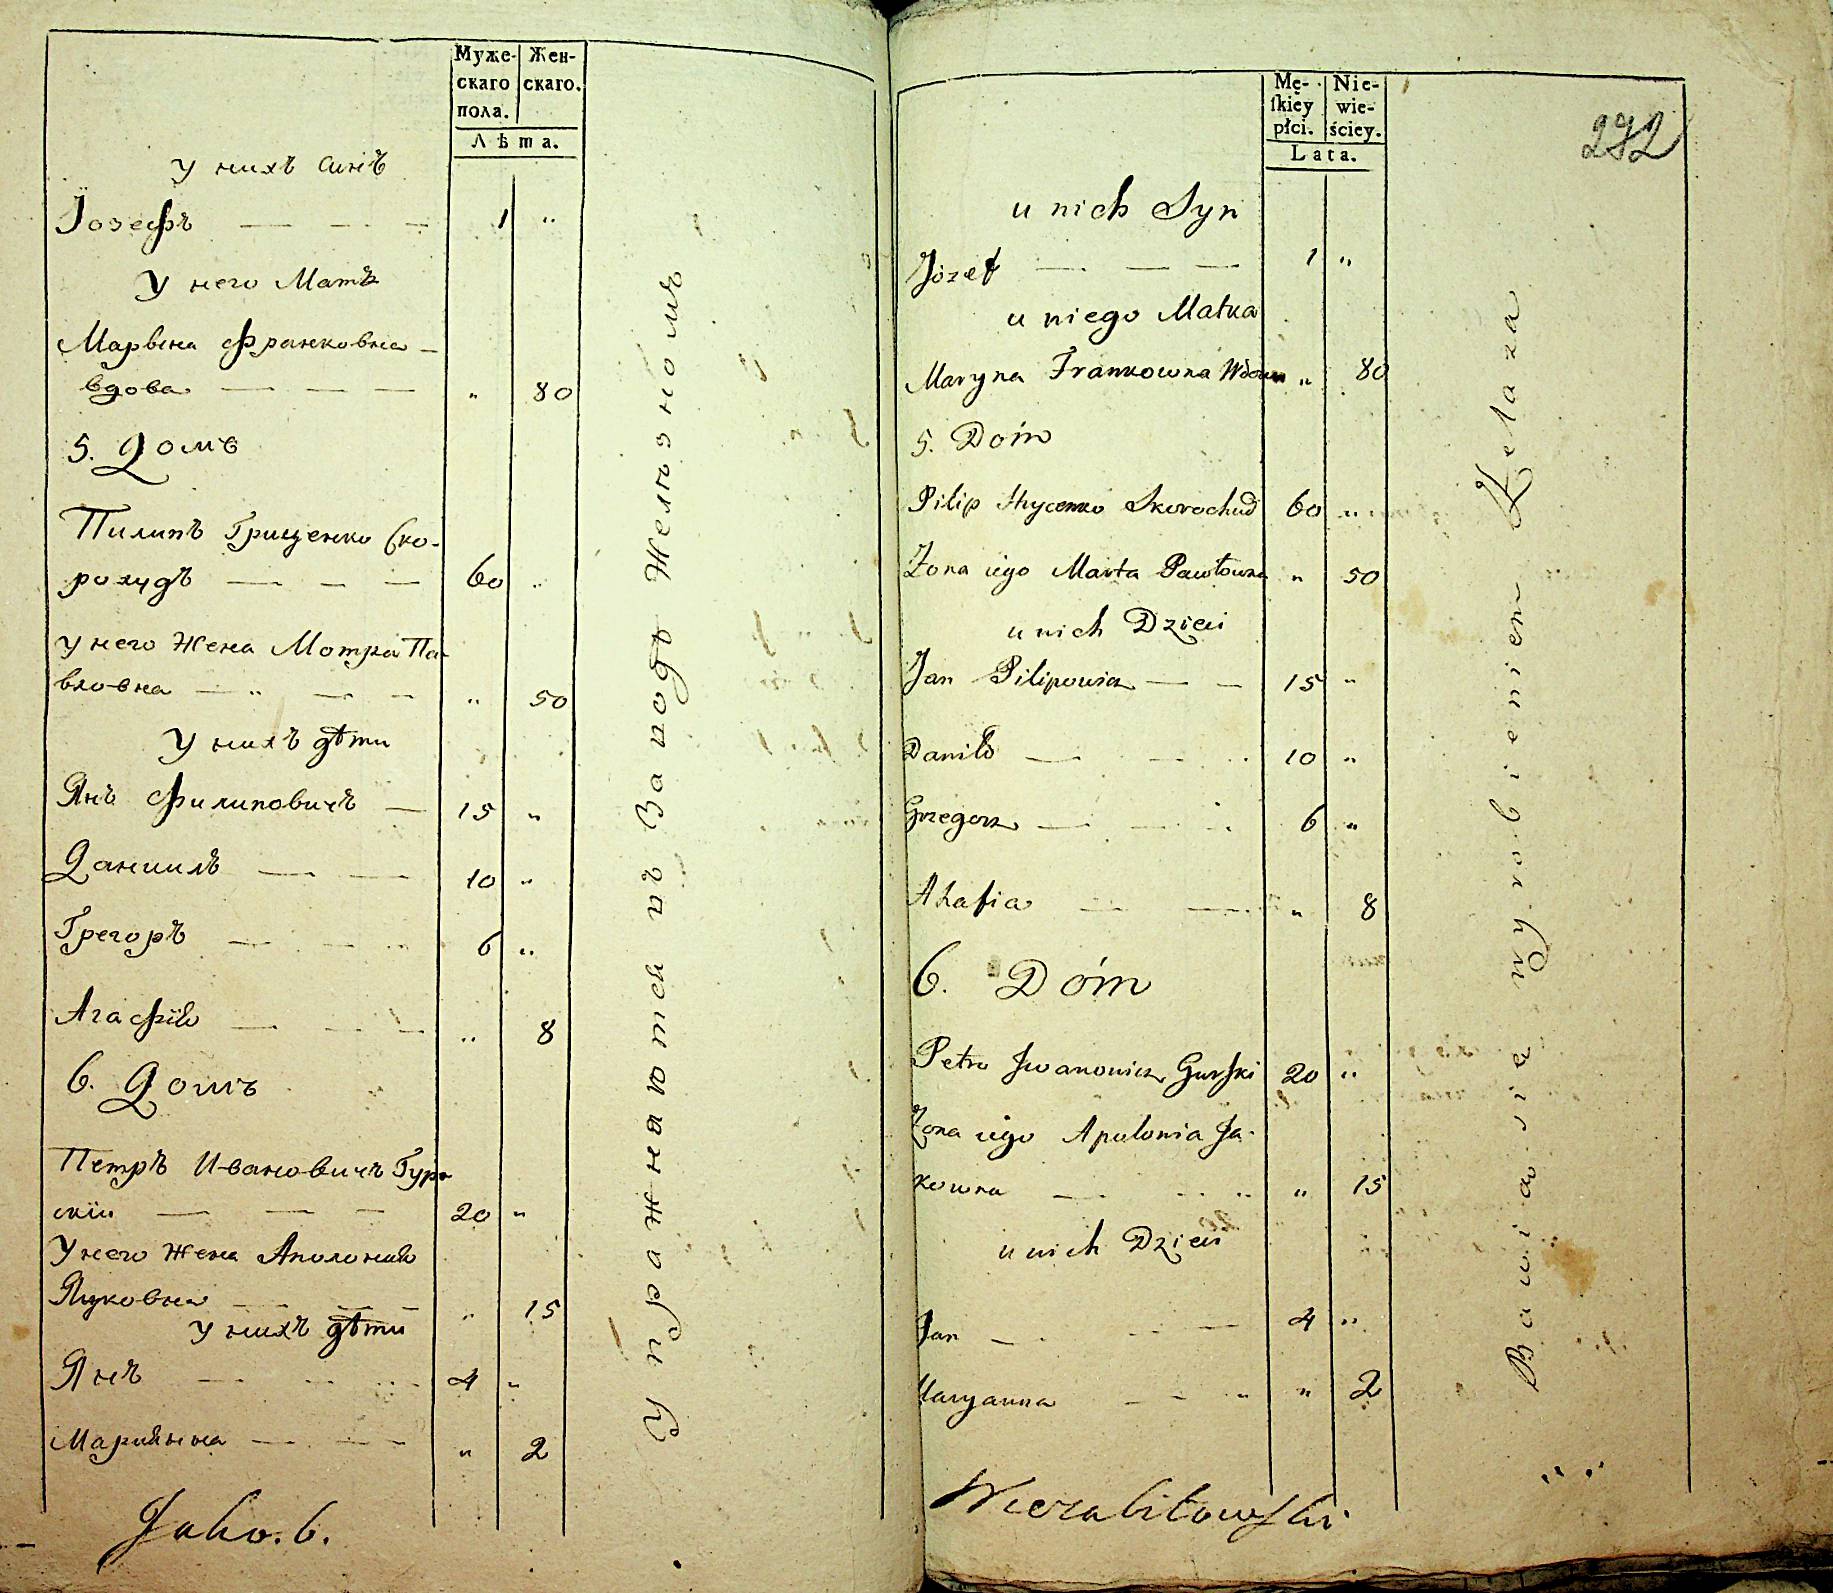 Муже- Жен-
скаго скаго.
пола.
Лѣта.
У нихъ Синъ
Іозефъ — — — 1 "
У него Матъ
Марына Франковна —
вдова — — — " 80
5. Домъ
Пилипъ Грищенко Ско-
рохудъ — — — 60 "
У него Жена Мотра Па-
вловна — " — — " 50
У нихъ дѣти
Янъ Филиповичъ — 15 "
Даниилъ — — 10 "
Грегоръ — — " 6 "
Агафія — — — " 8
6. Домъ
Петръ Ивановичъ Гур-
скій — — — 20 "
У него Жена Аполонія
Яцковна — — — " 15
У нихъ дѣти
Янъ — 4 "
Маріянна — — " 2
Упражняются въ Заводѣ Желѣзномъ
Mę- Nie-
ſkiey wie-
płci. ściey.
Lata.
272
u nich Syn
Józef — — — 1 "
u niego Matka
Maryna Frankowna Wdowa " 80
5. Dóm
Pilip Hrycenko Skorochud 60 "
Żona iego Marta Pawłowna " 50
u nich Dzieci
Jan Pilipowicz — — 15 "
Daniło — 10 "
Grzegorz — — 6 "
Ahafia — — " 8
6. Dóm
Petro Jwanowicz Gurſki 20 "
Żona iego Apolonia Ja-
kowna — " 15
u nich Dzieci
Jan — — 4 "
Maryanna — — " " 2
Bawią się wyrobieniem Żelaza